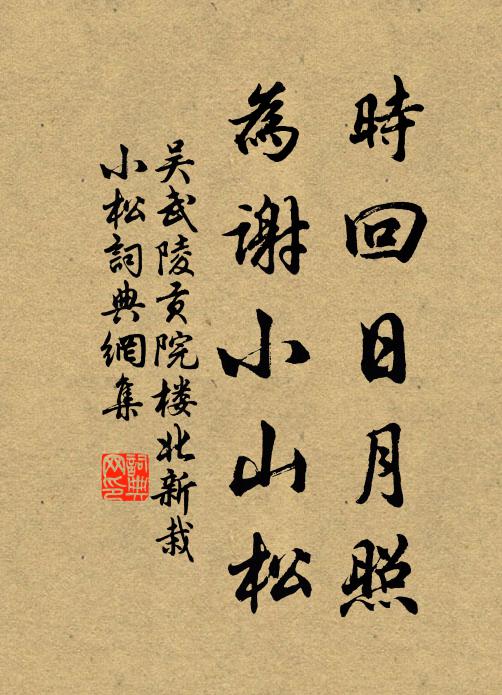 時回日月照
為謝小山松
吴武陵贡院楼北新栽
小松詞典網集
詞典
网印